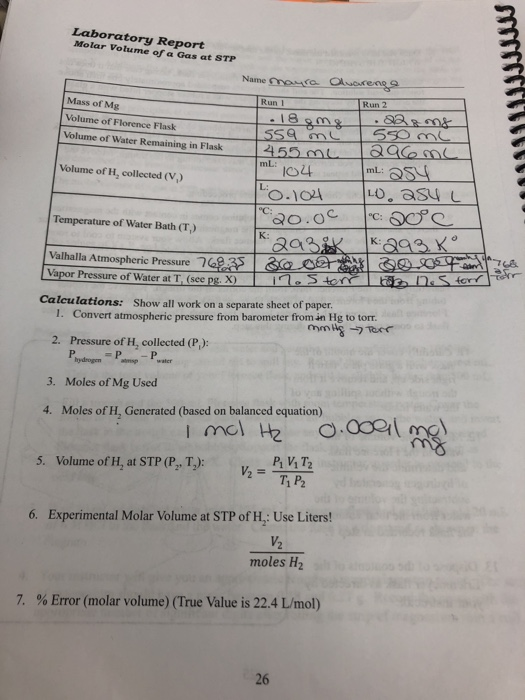 Laboratory Report
Molar Volume of a Gas at STP
Name Mayra Alvarenga
Run 1 Run 2
Mass of Mg .18 g mg .22 g mg
Volume of Florence Flask 559 mL 550 mL
Volume of Water Remaining in Flask 455 mL 296 mL
Volume of H₂ collected (V₁) mL: 104 mL: 254
L: 0.104 L: 0.254 L
Temperature of Water Bath (T₁) °C: 20.0c °C: 20°C
K: 293 K K: 293.K°
Valhalla Atmospheric Pressure 768.35 torr
Vapor Pressure of Water at T₁ (see pg. X) 17.5 torr 17.5 torr
Calculations: Show all work on a separate sheet of paper.
1. Convert atmospheric pressure from barometer from in Hg to torr.
mmHg → Torr
2. Pressure of H₂ collected (P₁):
P hydrogen = P atmosp − P water
3. Moles of Mg Used
4. Moles of H₂ Generated (based on balanced equation)
1 mol H₂ 0.0091 mol
mg
5. Volume of H₂ at STP (P₂, T₂): V₂ = P₁ V₁ T₂ / T₁ P₂
6. Experimental Molar Volume at STP of H₂: Use Liters!
V₂
moles H₂
7. % Error (molar volume) (True Value is 22.4 L/mol)
26